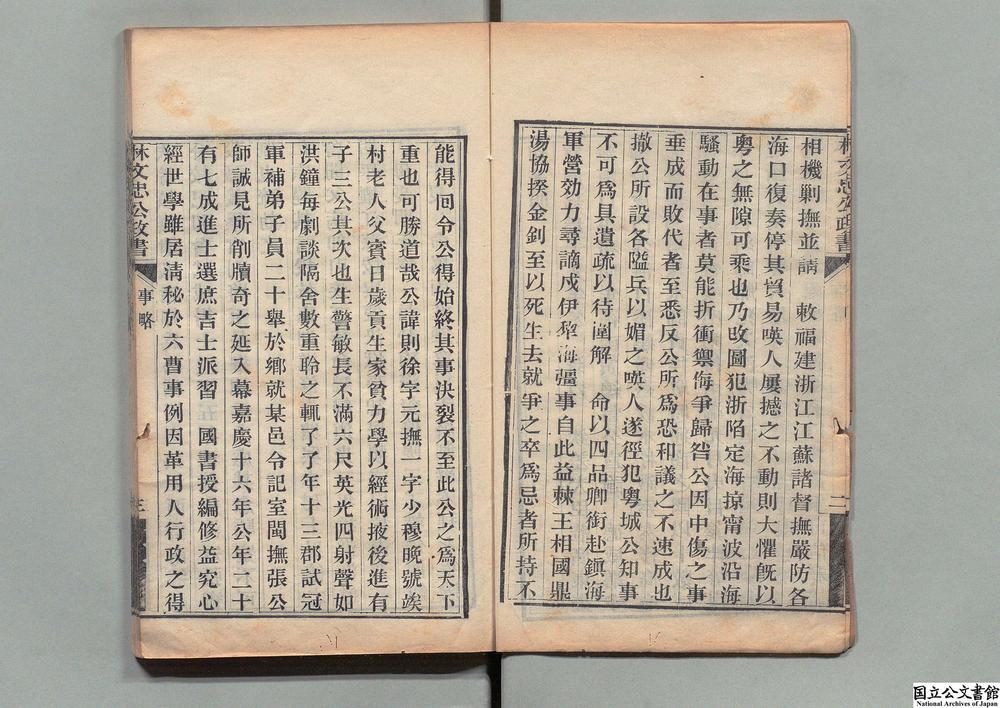 相機剿撫並請　敕福建浙江江蘇諸督撫嚴防各
海口復奏停其貿易㗇人屢撼之不動則大懼旣以
粵之無隙可乘也乃改圖犯浙陷定海掠甯波沿海
騷動在事者莫能折衝禦侮爭歸咎公因中傷之事
垂成而敗代者至悉反公所爲恐和議之不速成也
撤公所設各隘兵以媚之㗇人遂徑犯粵城公知事
不可爲具遺疏以待圍解　命以四品卿銜赴鎭海
軍營効力尋謫戍伊犂海疆事自此益棘王相國鼎
湯協揆金釗至以死生去就爭之卒爲忌者所持不
林文忠公政書
二
能得回令公得始終其事決裂不至此公之爲天下
重也可勝道哉公諱則徐字元撫一字少穆晚號竢
村老人父賓日歲貢生家貧力學以經術掖後進有
子三公其次也生警敏長不滿六尺英光四射聲如
洪鐘每劇談隔舍數重聆之輒了了年十三郡試冠
軍補弟子員二十舉於鄉就某邑令記室閩撫張公
師誠見所削牘奇之延入幕嘉慶十六年公年二十
有七成進士選庶吉士派習　國書授編修益究心
經世學雖居清秘於六曹事例因革用人行政之得
林文忠公政書
事略
三
国立公文書館
National Archives of Japan